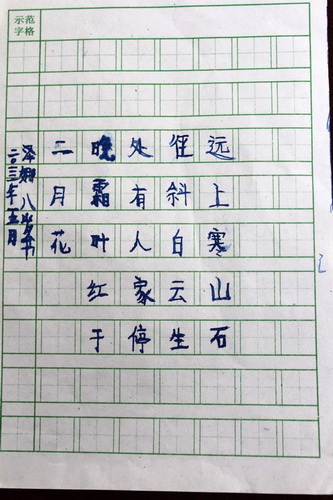 示范
字格
远上寒山石
径斜白云生
处有人家停
晚霜叶红于
二月花
泽 八岁书
二〇一三年五月